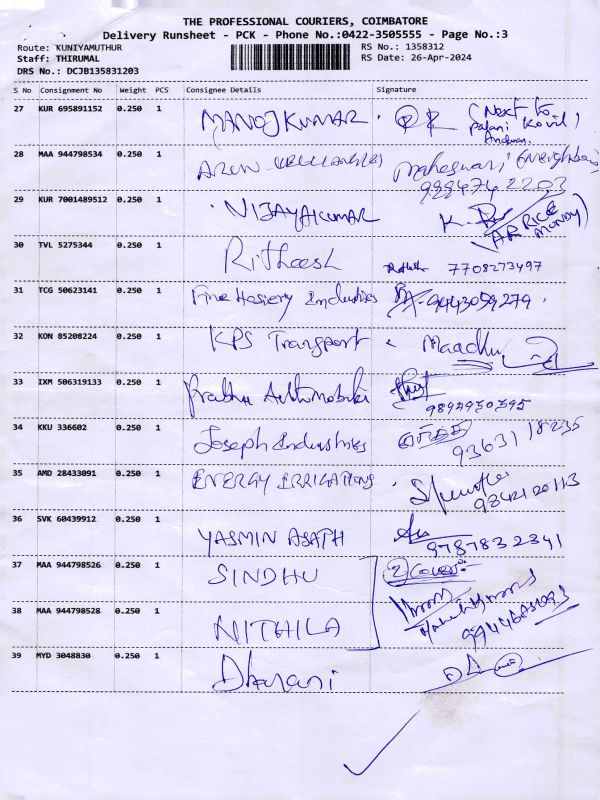 THE PROFESSIONAL COURIERS, COIMBATORE
Delivery Runsheet - PCK - Phone No.:0422-3505555 - Page No.:3
Route: KUNIYAMUTHUR
RS No.: 1358312
Staff: THIRUMAL
RS Date: 26-Apr-2024
DRS No.: DCJB135831203
S No Consignment No Weight PCS Consignee Details Signature
27 KUR 695891152 0.250 1 MANOJ KUMAR. (Next to
Palani Kovil)
28 MAA 944798534 0.250 1 ARUN Maheswari (Neighbour)
29 KUR 7001489512 0.250 1 VIJAYAKUMAR K.
(AR RICE
MONDY)
30 TVL 5275344 0.250 1 Ritheesh 7708273497
31 TCG 50623141 0.250 1 Fine Hosiery Industries 9443059279.
32 KON 85208224 0.250 1 KPS Transport Maadhu
33 IXM 506319133 0.250 1 Prabhu Automobile
9894930395
34 KKU 336602 0.250 1 Joseph Industries
9363118235
35 AMD 28433091 0.250 1 ENERGY IRRIGATIONS.
9842120113
36 SVK 60439912 0.250 1 YASMIN ASATH
9787832341
37 MAA 944798526 0.250 1 SINDHU (2) Cover:
38 MAA 944798528 0.250 1 NITHILA
39 MYD 3048830 0.250 1 Dharani